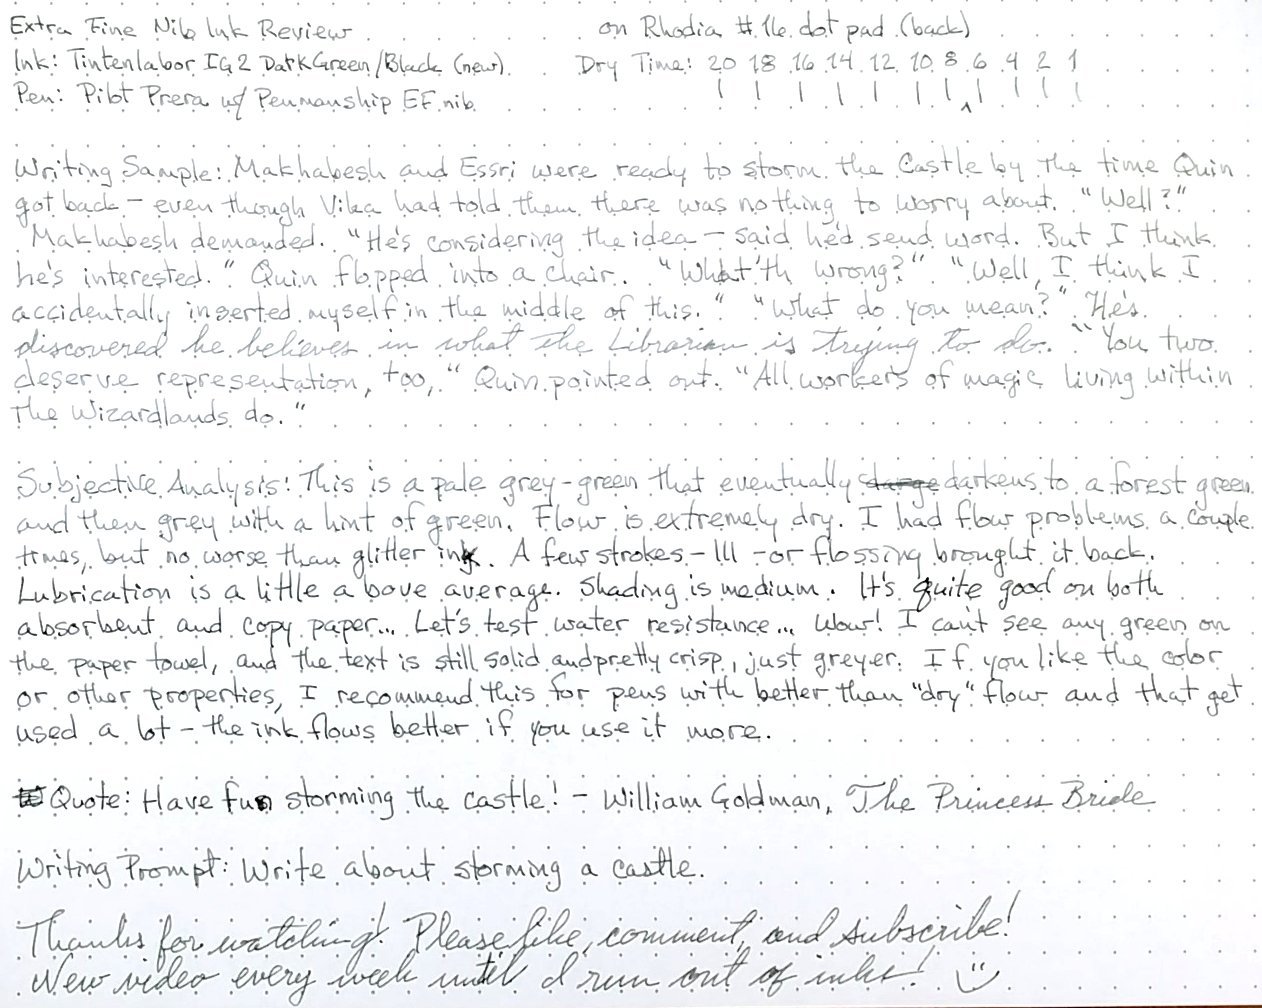 Extra Fine Nib Ink Review on Rhodia #16 dot pad (back)
Ink: Tintenlabor IG2 Dark Green/Black (new) Dry Time: 20 18 16 14 12 10 8 6 4 2 1
Pen: Pilot Prera w/ Penmanship EF nib
Writing Sample: Makhabesh and Essri were ready to storm the Castle by the time Quin
got back – even though Vika had told them there was nothing to worry about. "Well?"
Makhabesh demanded. "He's considering the idea – said he'd send word. But I think
he's interested." Quin flopped into a chair. "What'th wrong?" "Well, I think I
accidentally inserted myself in the middle of this." "What do you mean?" "He's
discovered he believes in what the Librarian is trying to do." "You two
deserve representation, too," Quin pointed out. "All workers of magic living within
the Wizardlands do."
Subjective Analysis: This is a pale grey-green that eventually darkens to a forest green
and then grey with a hint of green. Flow is extremely dry. I had flow problems a couple
times, but no worse than glitter ink. A few strokes – lll – or flossing brought it back.
Lubrication is a little above average. Shading is medium. It's quite good on both
absorbent and copy paper... Let's test water resistance... Wow! I can't see any green on
the paper towel, and the text is still solid and pretty crisp, just greyer. If you like the color
or other properties, I recommend this for pens with better than "dry" flow and that get
used a lot – the ink flows better if you use it more.
Quote: Have fun storming the castle! – William Goldman, The Princess Bride
Writing Prompt: Write about storming a castle.
Thanks for watching! Please like, comment, and subscribe!
New video every week until I run out of inks!